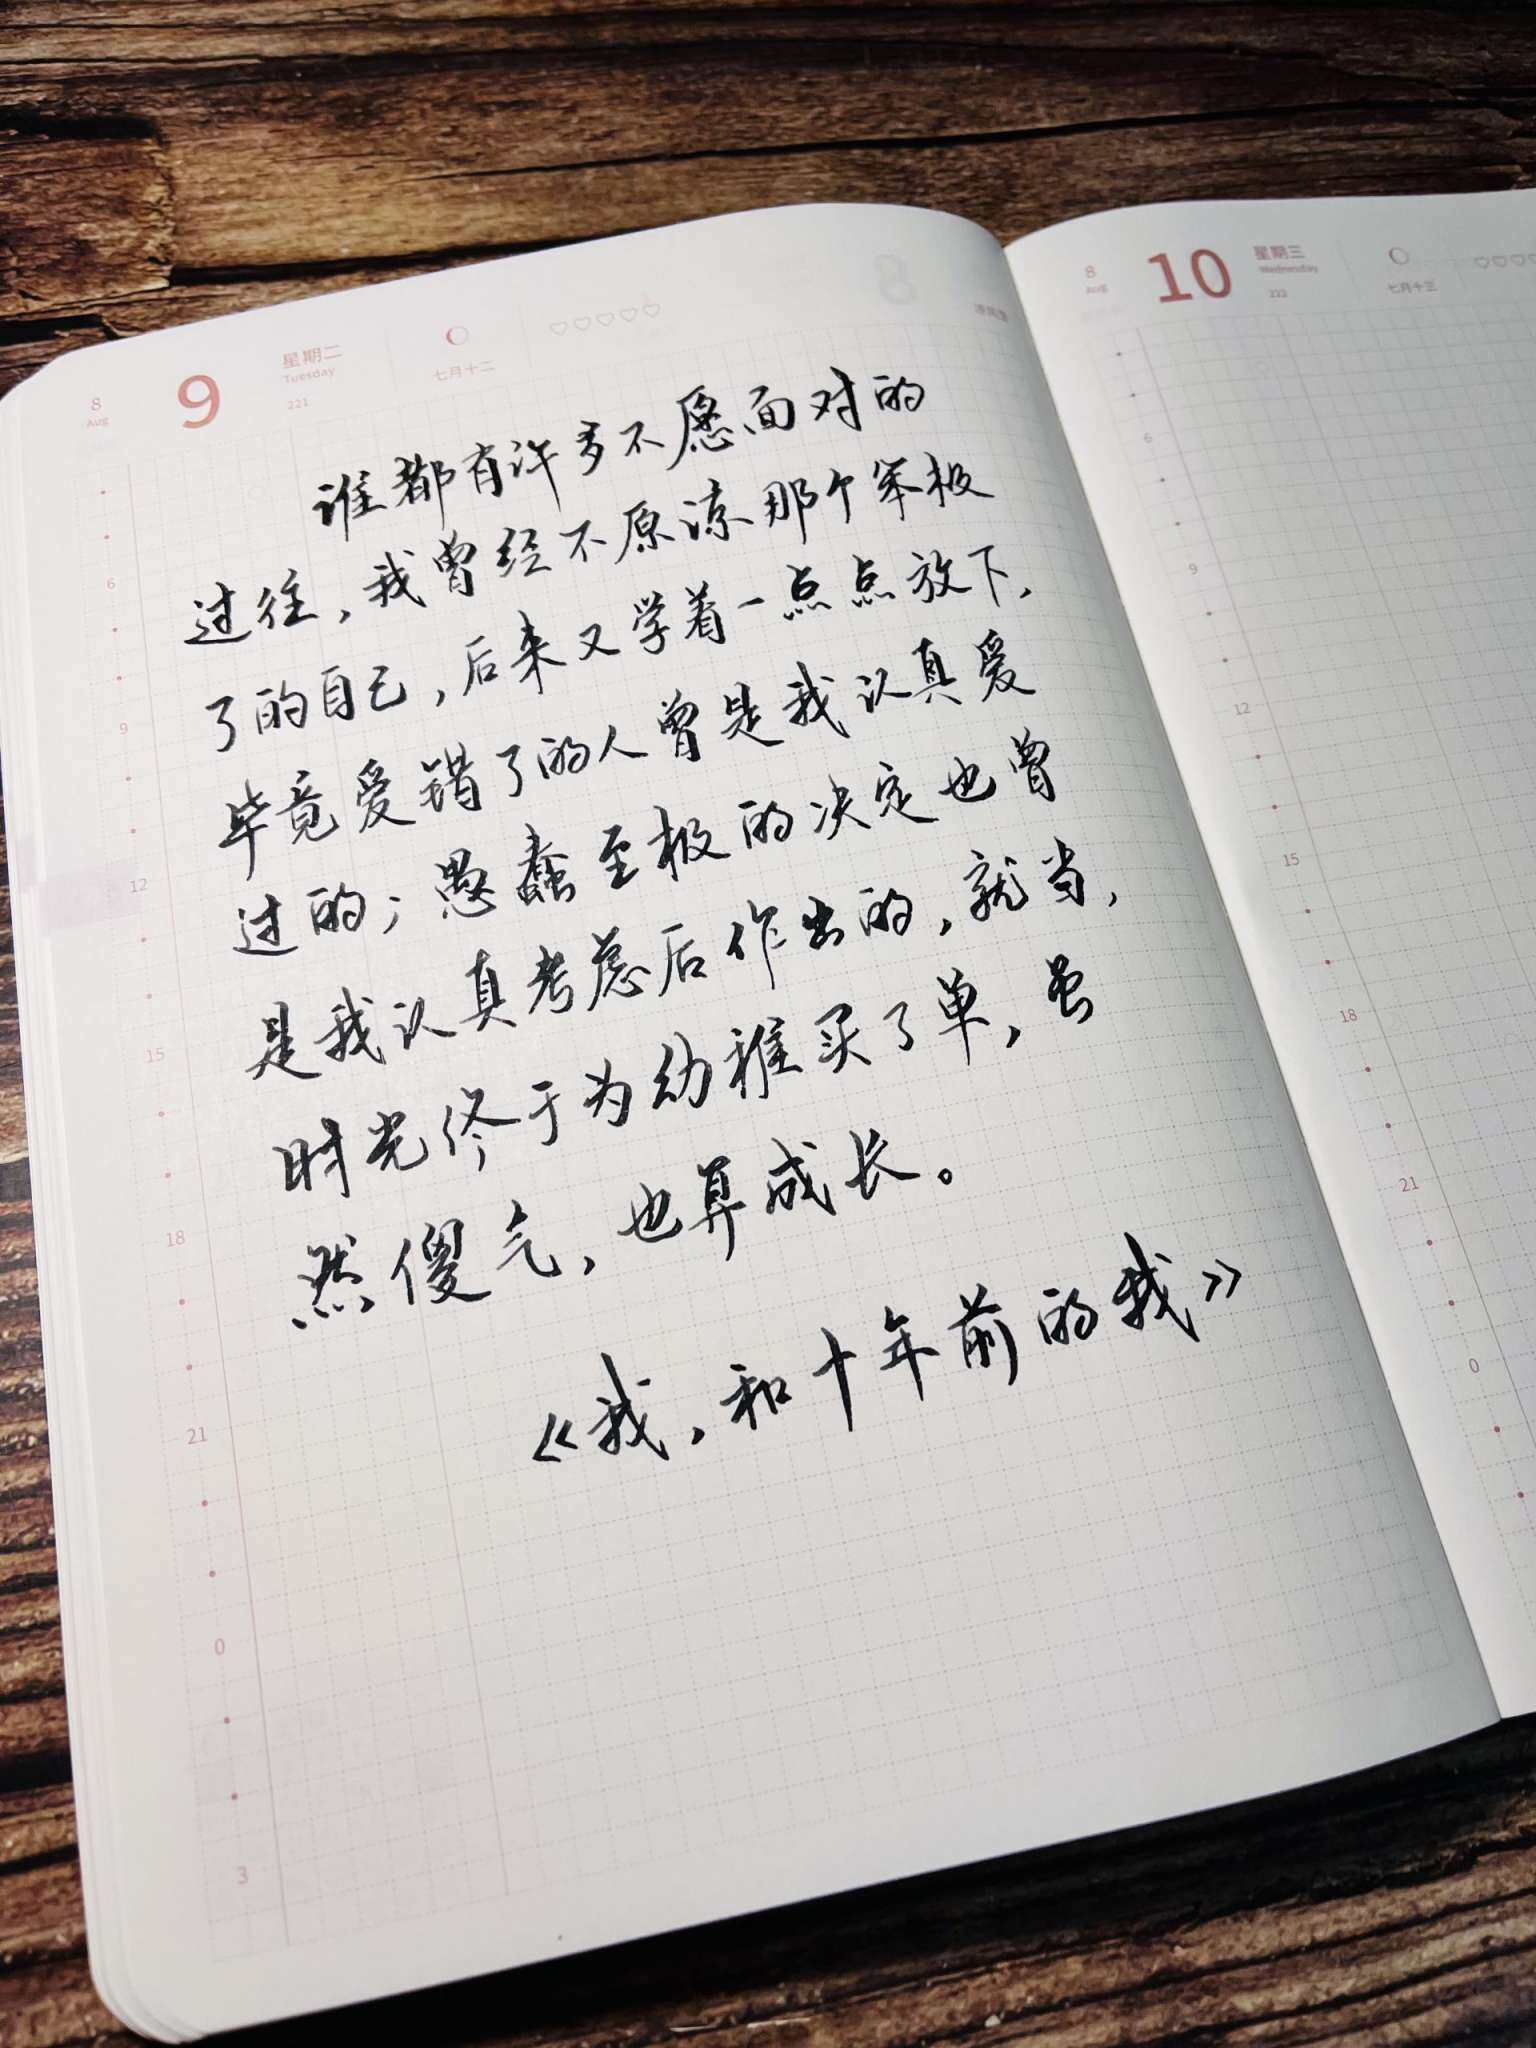 8
Aug
9
星期二
Tuesday
221
七月十二
8
Aug
10
星期三
Wednesday
222
七月十三
谁都有许多不愿面对的
过往，我曾经不原谅那个笨极
了的自己，后来又学着一点点放下，
毕竟爱错了的人曾是我认真爱
过的；愚蠢至极的决定也曾
是我认真考虑后作出的，就当，
时光终于为幼稚买了单，虽
然傻气，也算成长。
《我，和十年前的我》
6
9
12
15
18
21
0
3
6
9
12
15
18
21
0